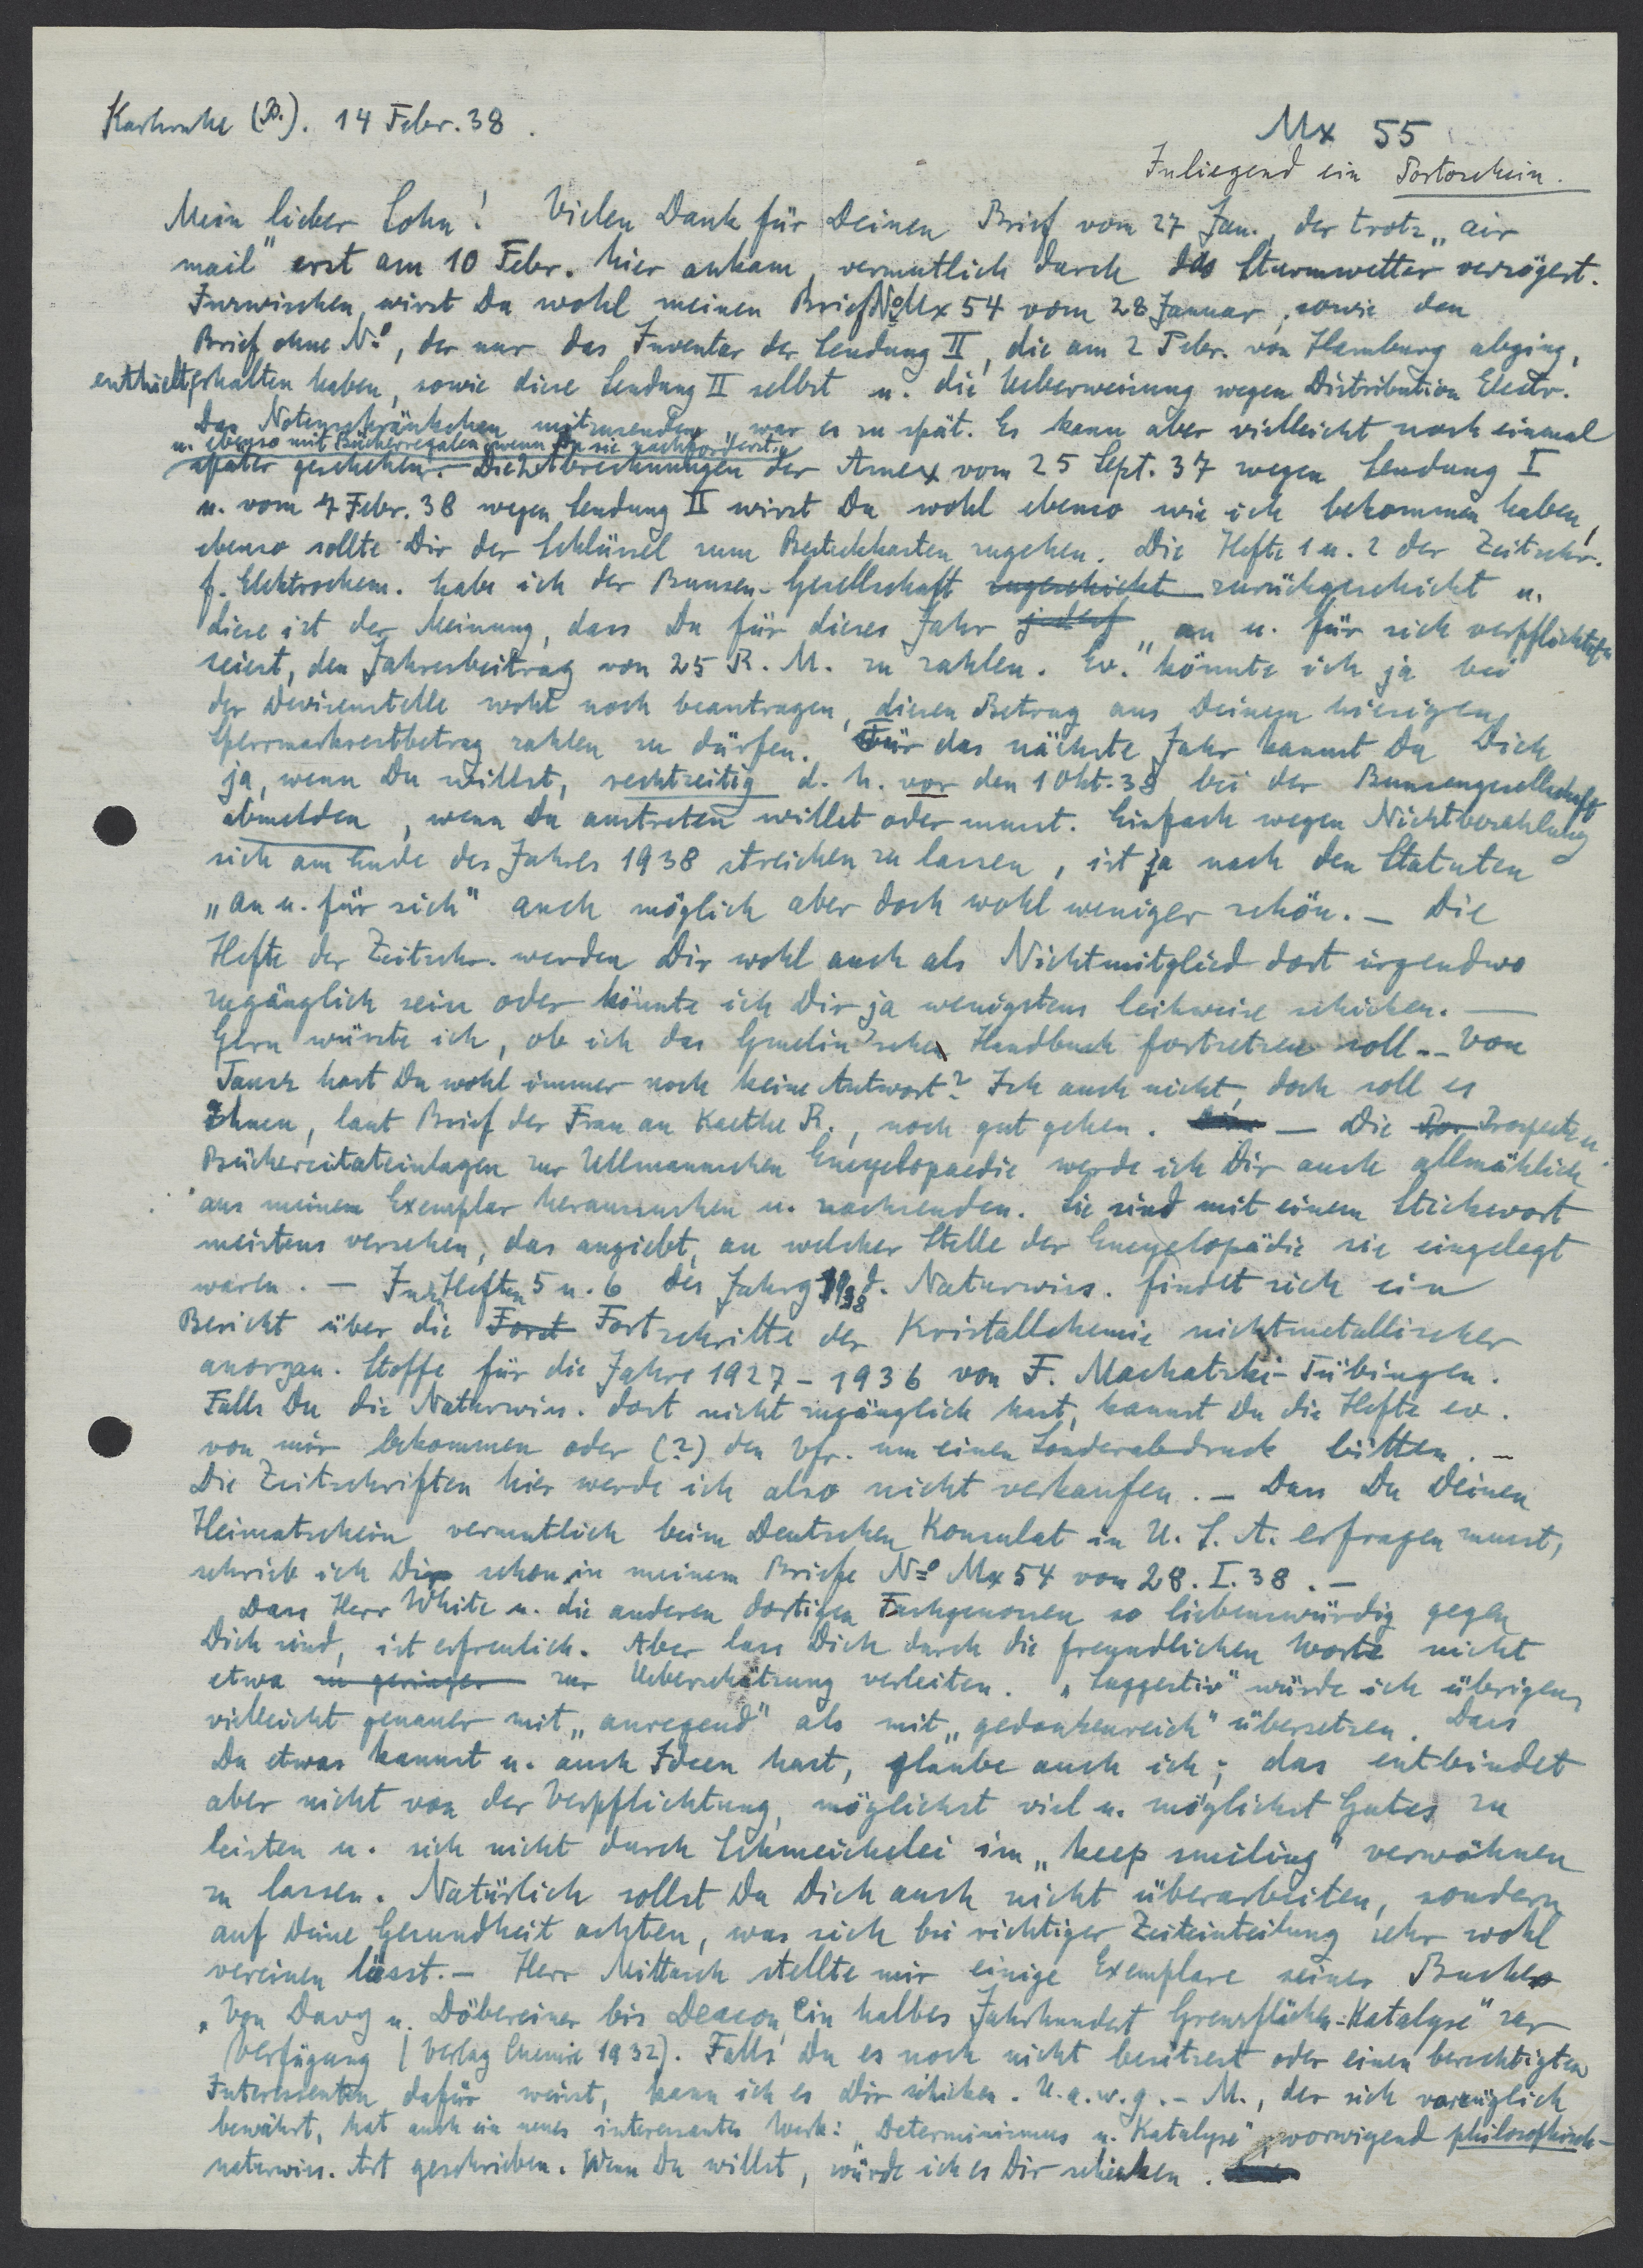 Karlsruhe (B.). 14 Febr. 38.
Mx 55
Inliegend ein Portoschein.
Mein lieber Sohn! Vielen Dank für Deinen Brief vom 27 Jan., der trotz „air
mail" erst am 10 Febr. hier ankam, vermutlich durch das Sturmwetter verzögert.
Inzwischen wirst Du wohl meinen Brief No Mx 54 vom 28 Januar, sowie den
Brief ohne No, der nur das Inventar der Sendung II, die am 2 Febr. von Hamburg abging,
enthielt, erhalten haben, sowie diese Sendung II selbst u. die Ueberweisung wegen Distribution Electr.
Das Notenschränkchen mitzusenden, war es zu spät. Es kann aber vielleicht noch einmal
u. ebenso mit Bücherregalen, wenn Du sie nachforderst.
später geschehen. Die 2 Abrechnungen der Amex vom 25 Sept. 37 wegen Sendung I
u. vom 7 Febr. 38 wegen Sendung II wirst Du wohl ebenso wie ich bekommen haben,
ebenso sollte Dir der Schlüssel zum Besteckkasten zugehen. Die Hefte 1 u. 2 der Zeitschr.
f. Elektrochem. habe ich der Bunsen-Gesellschaft zugeschickt zurückgeschickt u.
diese ist der Meinung, dass Du für dieses Jahr „an u. für sich verpflichtet
seiest, den Jahresbeitrag von 25 R. M. zu zahlen. Ev." könnte ich ja bei
der Devisenstelle wohl noch beantragen, diesen Betrag aus Deinem hiesigen
Sperrmarkrestbetrag zahlen zu dürfen. Für das nächste Jahr kannst Du Dich
ja, wenn Du willst, rechtzeitig d. h. vor den 1 Okt. 38 bei der Bunsengesellschaft
abmelden, wenn Du austreten willst oder musst. Einfach wegen Nichtbezahlung
sich am Ende des Jahres 1938 streichen zu lassen, ist ja nach den Statuten
„an u. für sich" auch möglich aber doch wohl weniger schön. – Die
Hefte der Zeitschr. werden Dir wohl auch als Nichtmitglied dort irgendwo
zugänglich sein oder könnte ich Dir ja wenigstens leihweise schicken. —
Gern wüsste ich, ob ich das Gmelin'sche Handbuch fortsetzen soll. – Von
Tausz hast Du wohl immer noch keine Antwort? Ich auch nicht, doch soll es
Ihnen, laut Brief der Frau an Kaethe R., noch gut gehen. — Die Prospekte u.
Bücherzitateinlagen zur Ullmannschen Encyclopaedie werde ich Dir auch allmählich
aus meinem Exemplar heraussuchen u. nachsenden. Sie sind mit einem Stichwort
meistens versehen, das angiebt, an welcher Stelle der Encyclopädie sie eingelegt
waren. – In den Heften 5 u. 6 des Jahrg 1938 d. Naturwiss. findet sich ein
Bericht über die Forst Fortschritte der Kristallchemie nichtmetallischer
anorgan. Stoffe für die Jahre 1927 – 1936 von F. Machatzki-Tübingen.
Falls Du die Naturwiss. dort nicht zugänglich hast, kannst Du die Hefte ev.
von mir bekommen oder (?) den Vfr. um einen Sonderabdruck bitten. –
Die Zeitschriften hier werde ich also nicht verkaufen. – Dass Du Deinen
Heimatschein vermutlich beim Deutschen Konsulat in U. S. A. erfragen musst,
schrieb ich Dir schon in meinem Briefe No Mx 54 vom 28. I. 38. –
Dass Herr White u. die anderen dortigen Fachgenossen so liebenswürdig gegen
Dich sind, ist erfreulich. Aber lass Dich durch die freundlichen Worte nicht
etwa zu geringer zur Ueberschätzung verleiten. „Suggestiv" würde ich übrigens
vielleicht genauer mit „anregend" als mit „gedankenreich" übersetzen. Dass
Du etwas kannst u. auch Ideen hast, glaube auch ich; das entbindet
aber nicht von der Verpflichtung, möglichst viel u. möglichst Gutes zu
leisten u. sich nicht durch Schmeichelei im „keep smiling" verwöhnen
zu lassen. Natürlich sollst Du Dich auch nicht überarbeiten, sondern
auf Deine Gesundheit achten, was sich bei richtiger Zeiteinteilung sehr wohl
vereinen lässt. – Herr Mittasch stellte mir einige Exemplare seines Buches
„Von Davy u. Döbereiner bis Deacon, ein halbes Jahrhundert Grenzflächen-Katalyse" zur
Verfügung (Verlag Chemie 1932). Falls Du es noch nicht besitzest oder einen berechtigten
Interessenten dafür weisst, kann ich es Dir schicken. U. a. w. g. – M., der sich vorzüglich
bewährt, hat auch ein neues interessantes Werk: „Determinismus u. Katalyse" vorwiegend philosophisch-
naturwiss. Art geschrieben. Wenn Du willst, würde ich es Dir schicken.